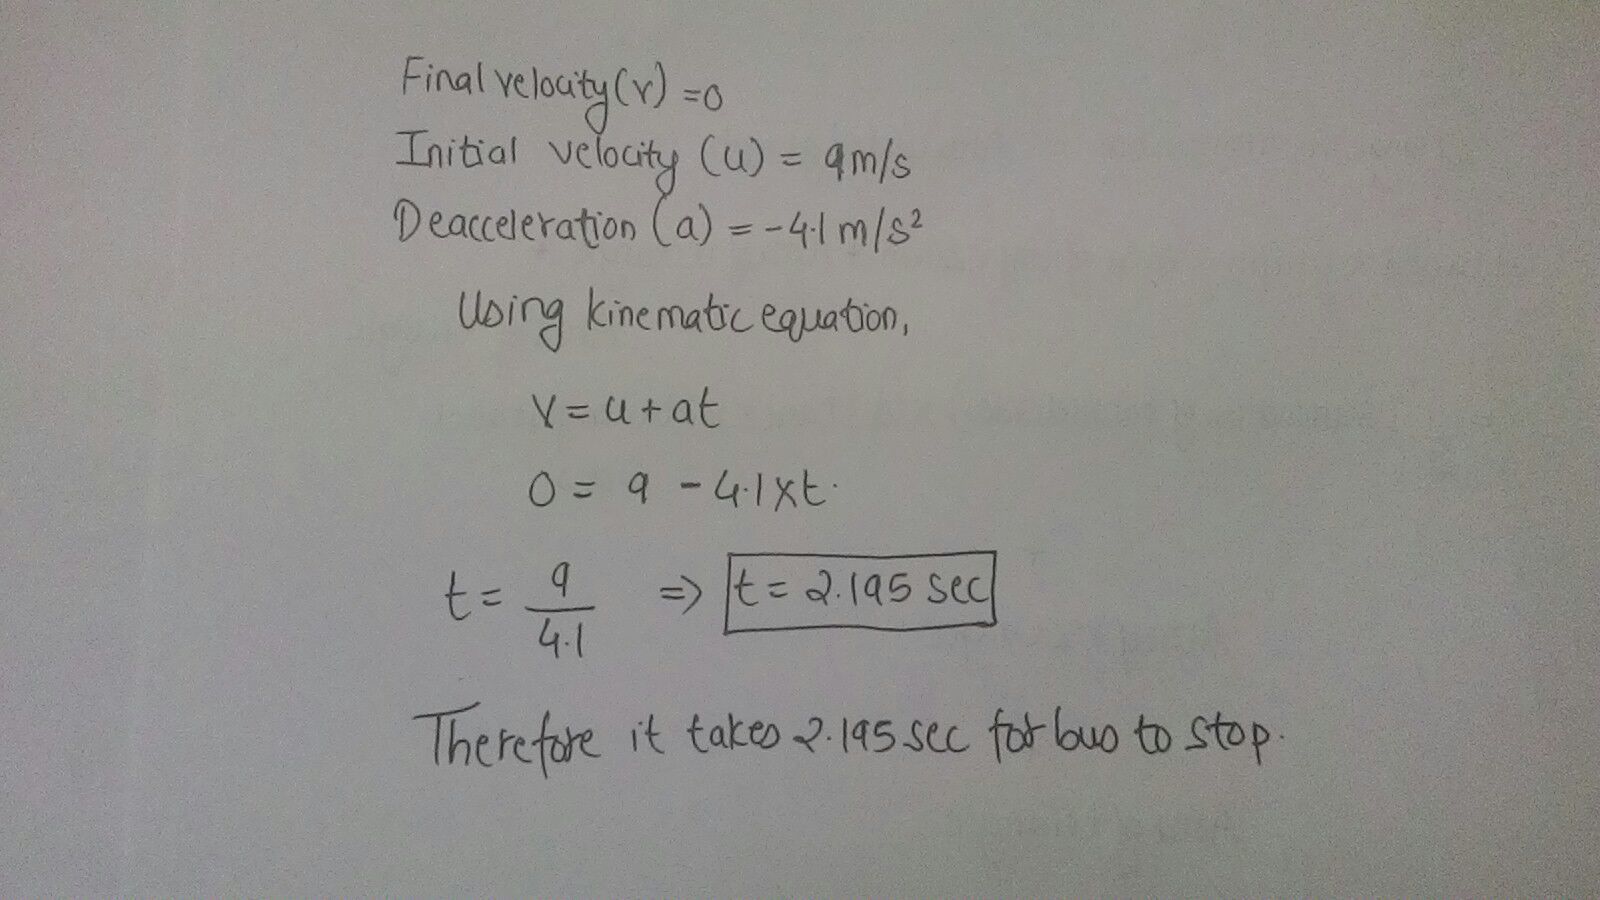 Final velocity (v) = 0
Initial velocity (u) = 9 m/s
Deacceleration (a) = -4.1 m/s²
Using kinematic equation,
v = u + at
0 = 9 - 4.1 x t.
t = 9/4.1 => t = 2.195 sec
Therefore it takes 2.195 sec for bus to stop.